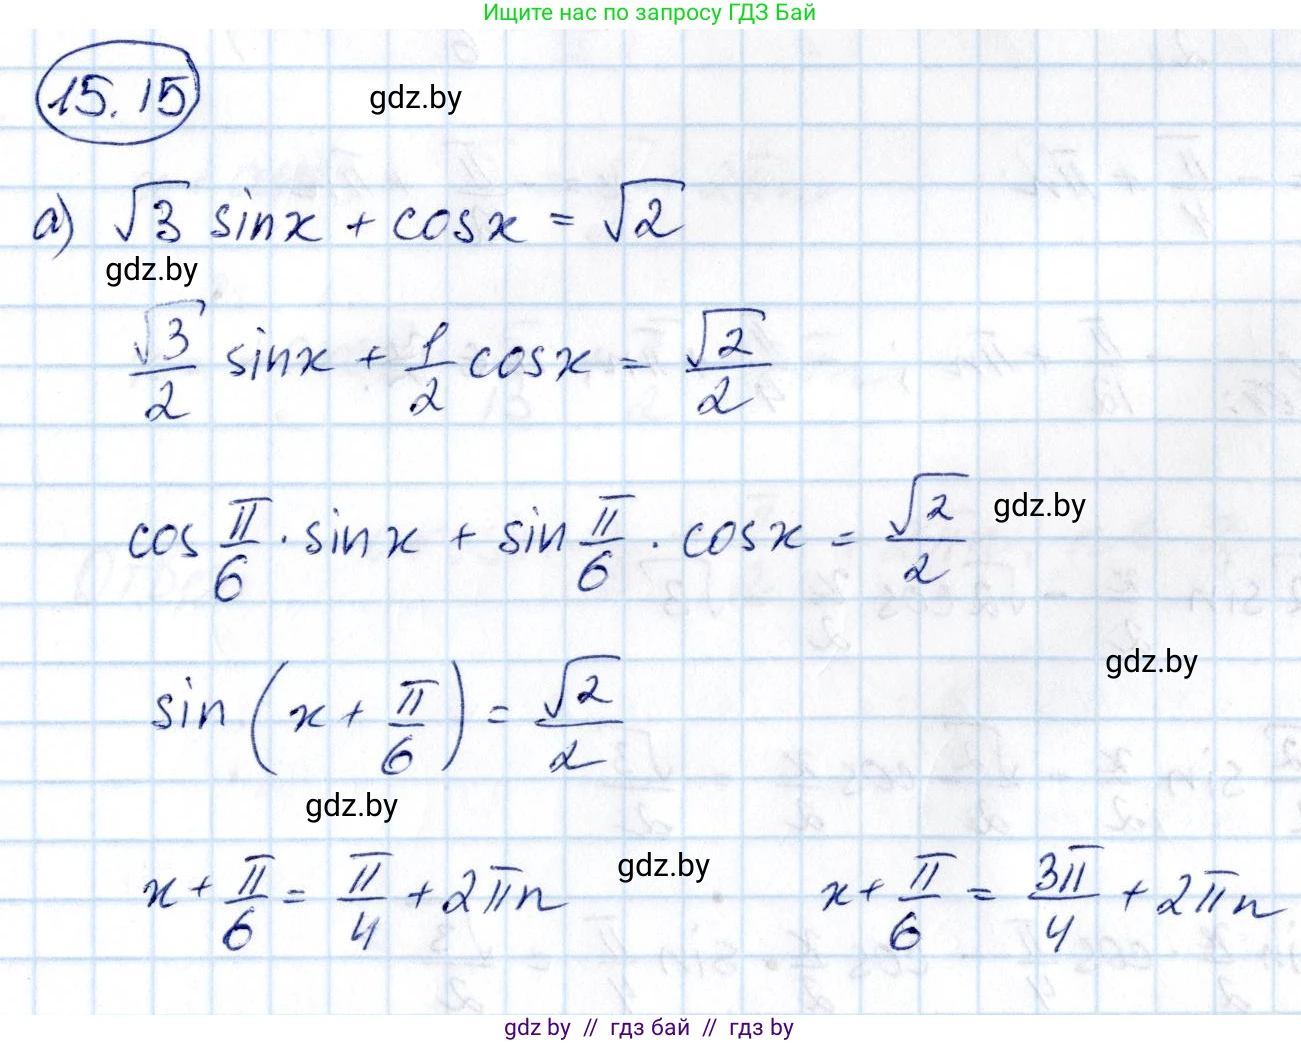 Ищите нас по запросу ГДЗ Бай
15.15
gdz.by
а) √3 sinx + cosx = √2
gdz.by
√3/2 sinx + 1/2 cosx = √2/2
cos π/6 · sinx + sin π/6 · cosx = √2/2
gdz.by
gdz.by
sin (x + π/6) = √2/2
gdz.by
gdz.by
x + π/6 = π/4 + 2πn x + π/6 = 3π/4 + 2πn
gdz by // гдз бай // гдз by